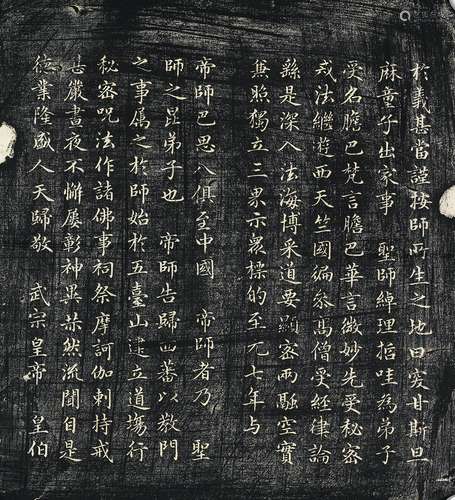 於義甚當謹按師所生之地曰突甘斯旦
麻童子出家事 聖師綽理哲哇為弟子
受名膽巴梵言膽巴華言微妙先受秘密
戒法繼遊西天竺國徧參高僧受經律論
繇是深入法海博采道要顯密兩融空實
兼照獨立三界示眾標的至元七年與
帝師巴思八俱至中國 帝師者乃 聖
師之昆弟子也 帝師告歸西蕃以教門
之事屬之於師始於五臺山建立道場行
秘密呪法作諸佛事祠祭摩訶伽剌持戒
甚嚴晝夜不懈屢彰神異赫然流聞自是
德業隆盛人天歸敬 武宗皇帝 皇伯